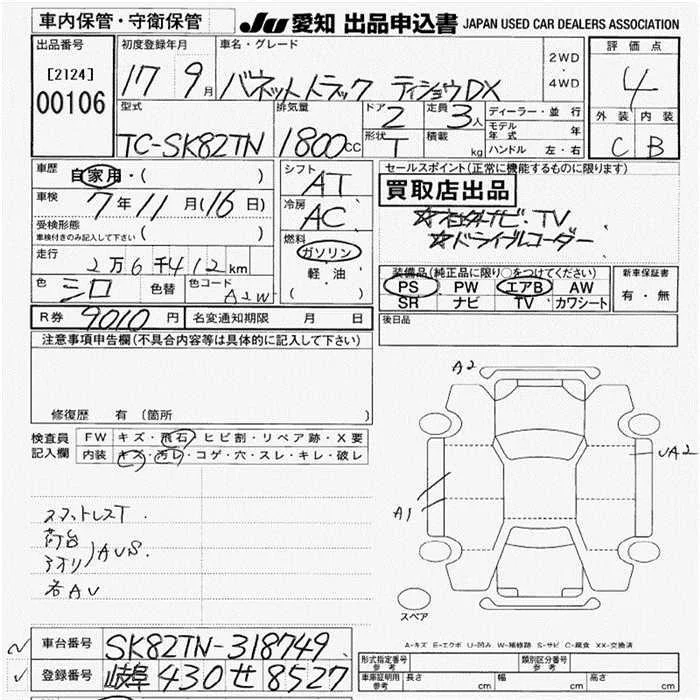 車内保管・守衛保管
JU 愛知 出品申込書 JAPAN USED CAR DEALERS ASSOCIATION
出品番号
[2124]
00106
初度登録年月
17 9月
車名・グレード
バネットトラック ティショウDX
2WD
・
4WD
評価点
4
外装 内装
C B
型式
TC-SK82TN
排気量
1800cc
ドア 2
形状 T
定員 3人
積載 kg
ディーラー・並行
モデル年式 年
ハンドル 左・右
車歴 自家用・( )
車検 7年11月(16日)
受検形態
車検付きのみ記入して下さい ( )
走行 2万6千412km
色 シロ 色替 色コード A2W
R券 9010円 名変通知期限 月 日
シフト AT
冷房 AC
燃料
ガソリン
軽油
( )
セールスポイント(正常に機能するものに限ります)
買取店出品
☆社外ナビ.TV
☆ドライブレコーダー
装備品(純正品に限り○をつけてください)
PS PW エアB AW
SR ナビ TV カワシート
新車保証書
有・無
後日品
注意事項申告欄(不具合内容等は具体的に記入して下さい)
修復歴 有(箇所 )
検査員記入欄
FW キズ・飛石・ヒビ割・リペア跡・X要
内装 キズ・汚レ・コゲ・穴・スレ・キレ・破レ
荷台
アオリ)AUS.
各AU
A2
UA2
A1
スペア
A-キズ E-エクボ U-凹み W-補修跡 S-サビ C-腐食 XX-交換済
車台番号 SK82TN-318749
登録番号 岐阜430せ8527
形式指定番号 参考
類別区分番号 参考
車庫証明用 参考 長さ cm 幅 cm 高さ cm